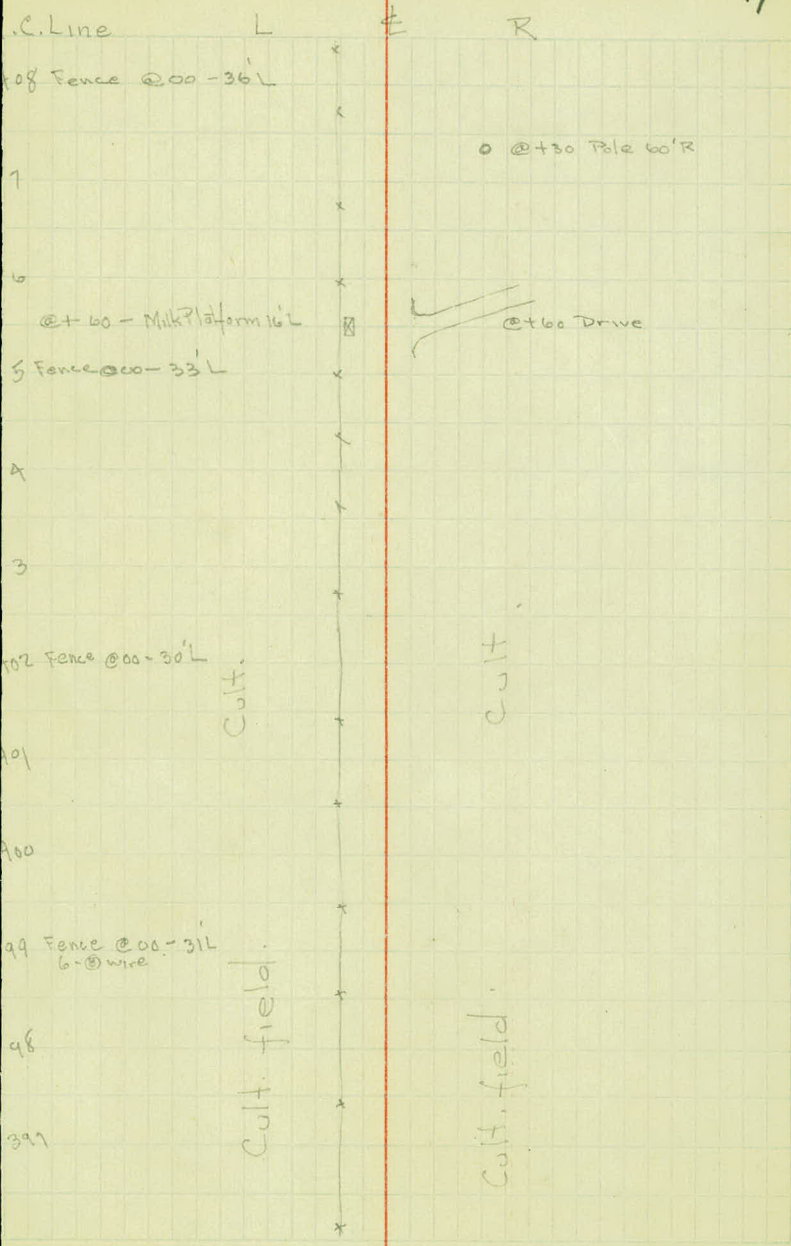 .C.Line L ℄ R
408 Fence @00 - 36'L
@+30 Pole 60'R
7
6
@+60 - Milk Platform 16'L
@+60 Drive
5 Fence @00 - 33'L
4
3
402 Fence @00 - 30'L
Cult.
Cult.
401
400
99 Fence @00 - 31'L
6-Ⓑ wire
Cult. field.
Cult. field.
98
397